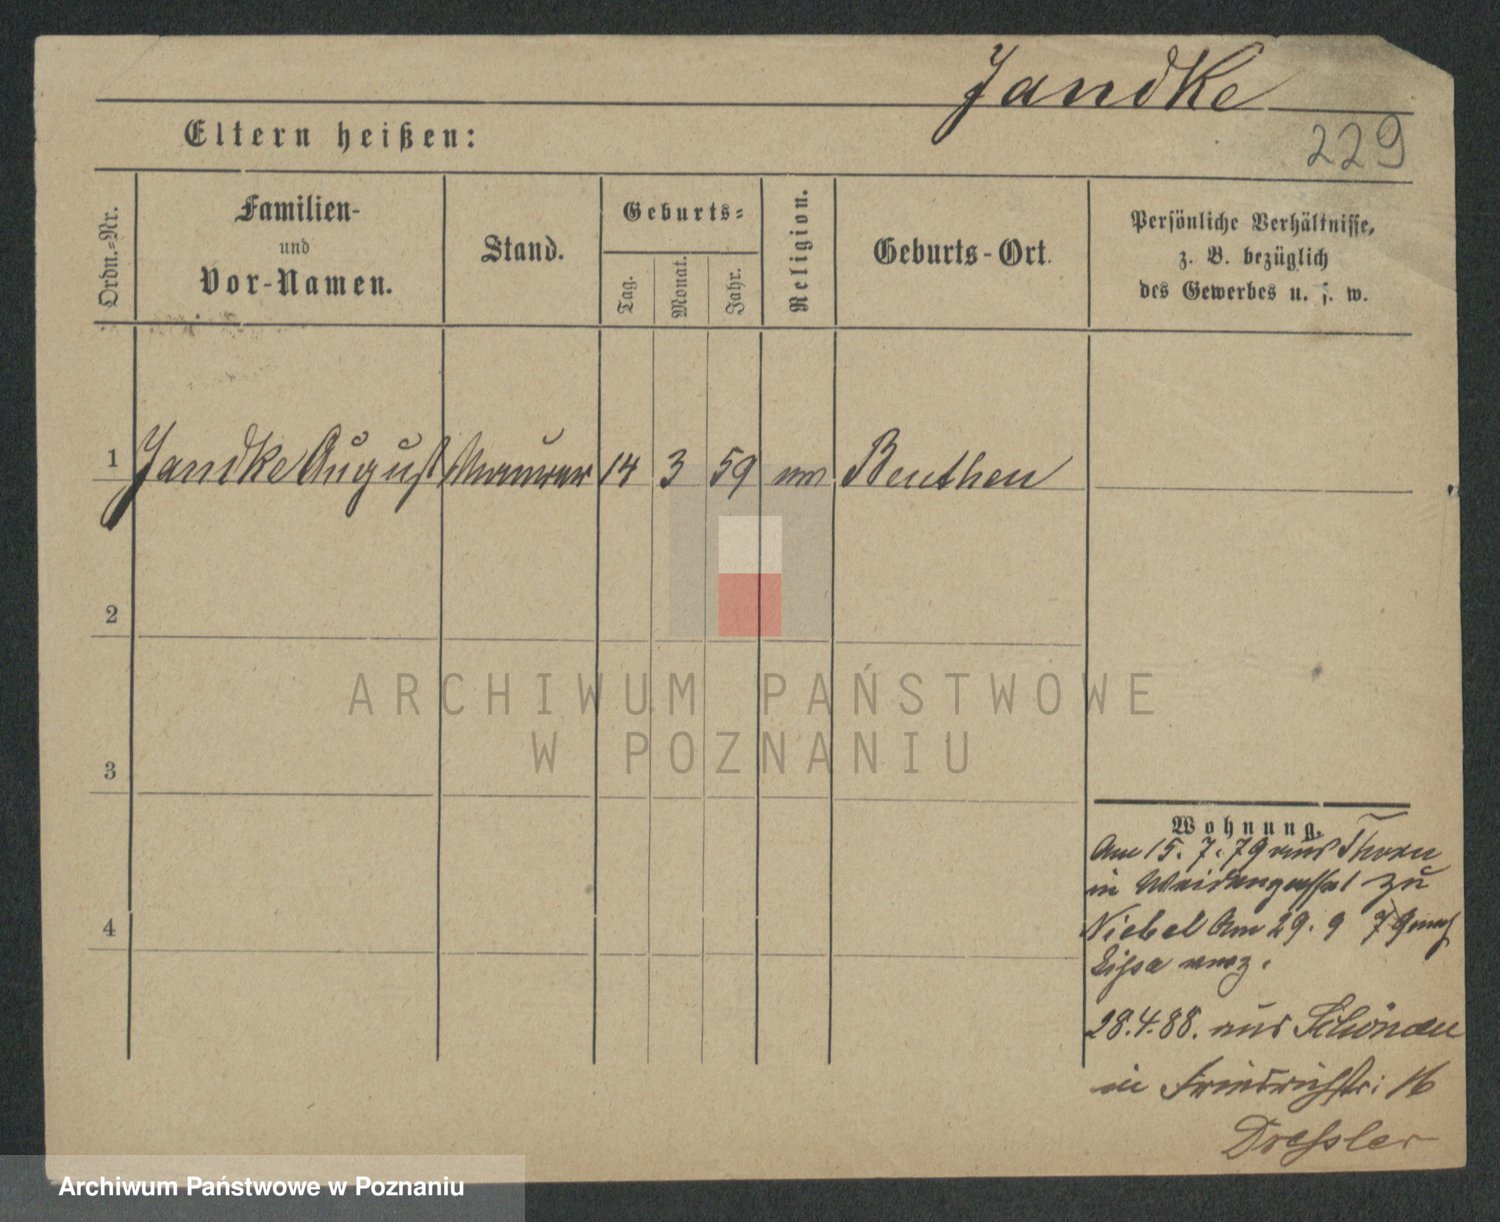 Jandke
229
Eltern heißen:
Ordn.-Nr.
Familien-
und
Vor-Namen.
Stand.
Geburts-
Tag.
Monat.
Jahr.
Religion.
Geburts-Ort.
Persönliche Verhältnisse,
z. B. bezüglich
des Gewerbes u. s. w.
1 Jandke August Maurer 14 3 59 Beuthen
2
3
4
ARCHIWUM PAŃSTWOWE
W POZNANIU
Wohnung.
Am 15. 7. 79 aus Thorn
in zu
Niebel Am 29. 9 79 nach
Lissa verz.
28.4.88. aus Schönau
in Friedrichstr: 16
Dressler
Archiwum Państwowe w Poznaniu